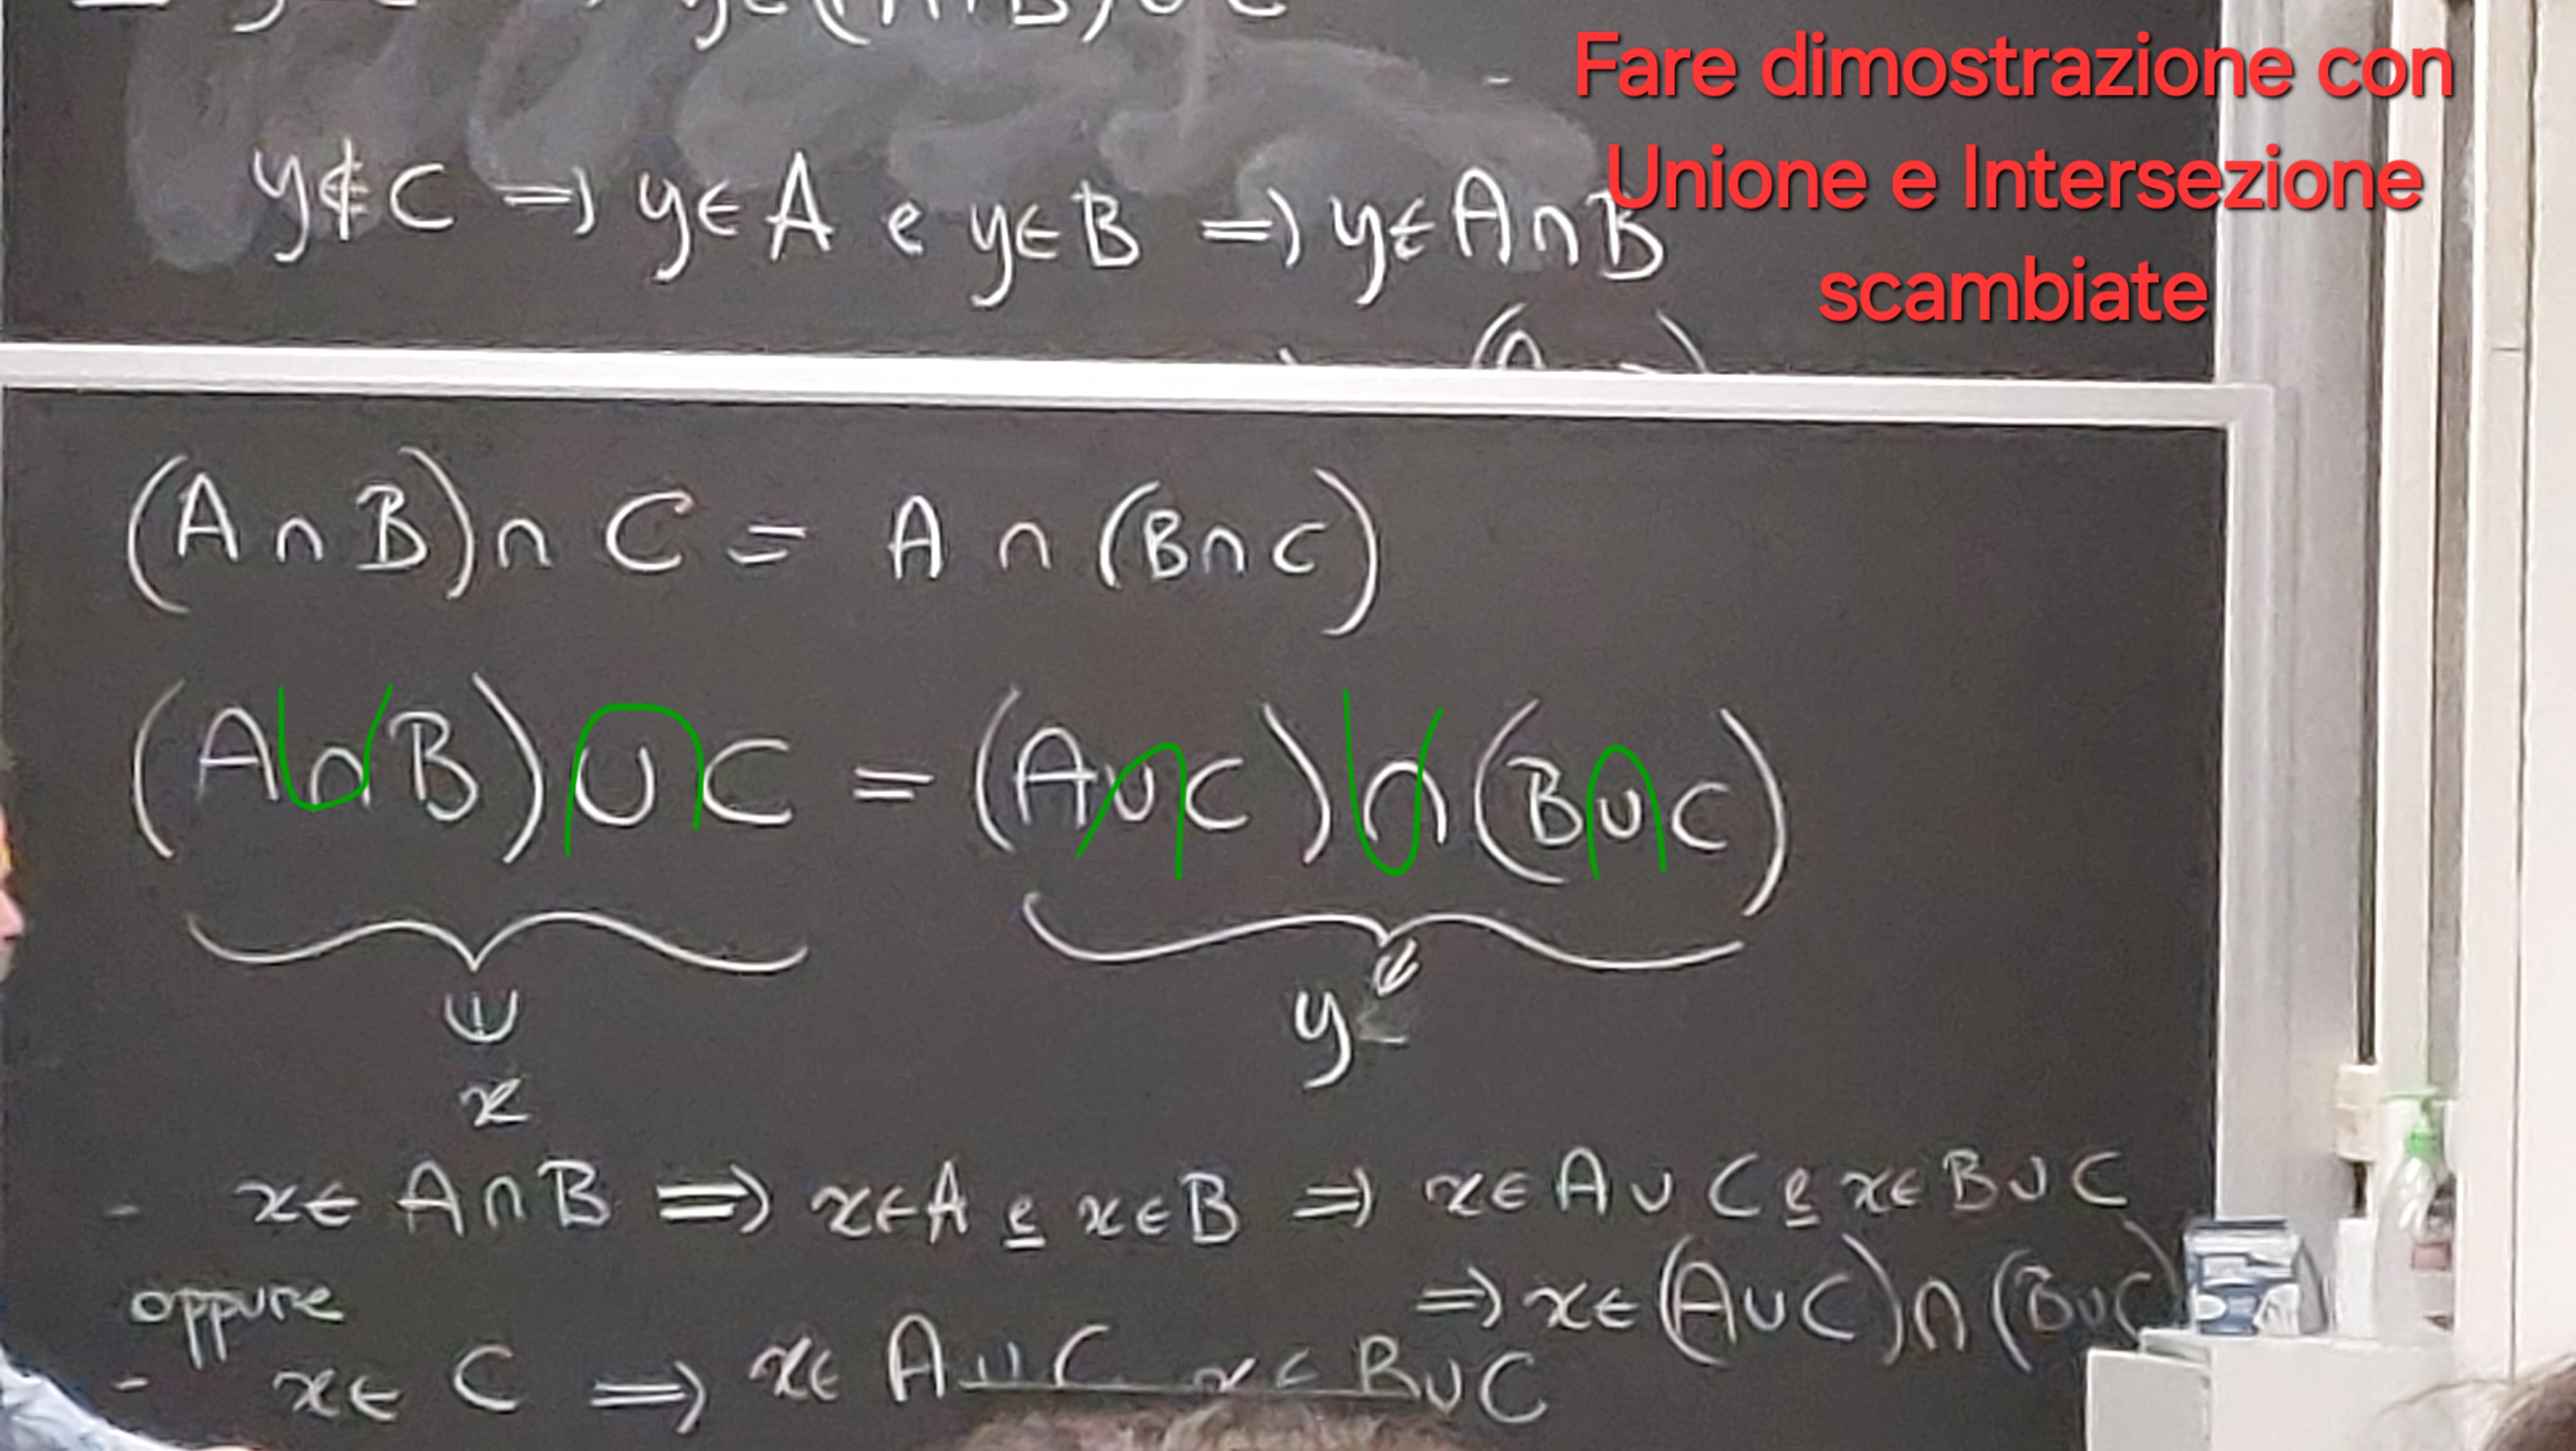 Fare dimostrazione con
Unione e Intersezione
scambiate
y∉C ⇒ y∈A e y∈B ⇒ y∈A∩B
(A∩B)∩C = A∩(B∩C)
(A∩B)∪C = (A∪C)∩(B∪C)
x
y
- x∈A∩B ⇒ x∈A e x∈B ⇒ x∈A∪C e x∈B∪C
⇒ x∈(A∪C)∩(B∪C)
oppure
- x∈C ⇒ x∈A∪C x∈B∪C